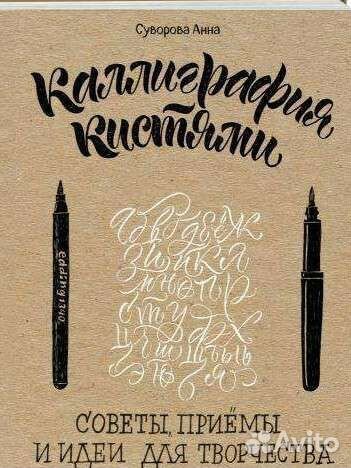 Суворова Анна
каллиграфия
кистями
edding 1340
а б в г д е ё ж
з и й к л
м н о п р
с т у ф х
ц ч ш щ ъ ы ь
э ю я
СОВЕТЫ, ПРИЁМЫ
И ИДЕИ ДЛЯ ТВОРЧЕСТВА
Avito